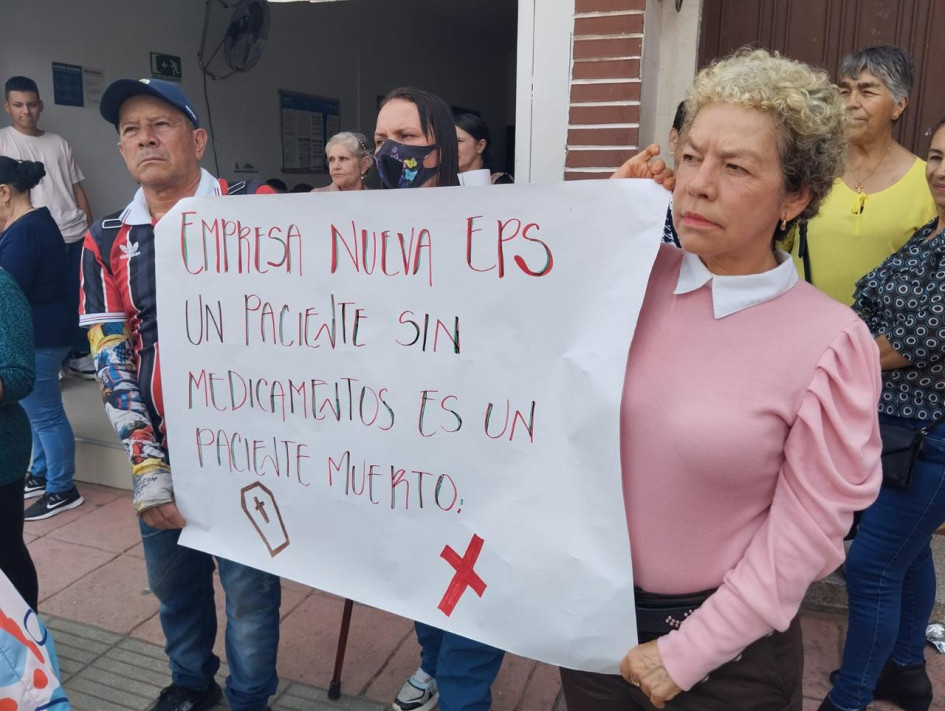 EMPRESA NUEVA EPS
UN PACIENTE SIN
MEDICAMENTOS ES UN
PACIENTE MUERTO: